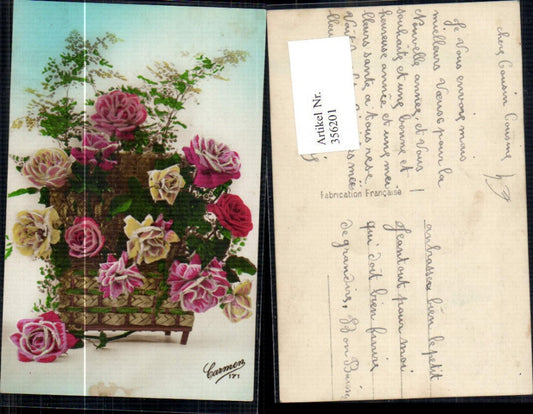 Carmen
171
Artikel Nr.
356201
Fabrication Française
cher Cousin Cousine
Je vous envoie mais
meilleurs Vœux pour la
Nouvelle année, et vous
souhaite et une bonne et
heureuse année et une mei
lleurs santé a tous
embrasser bien le petit
Jeantout pour moi
qui doit bien
de grandir,